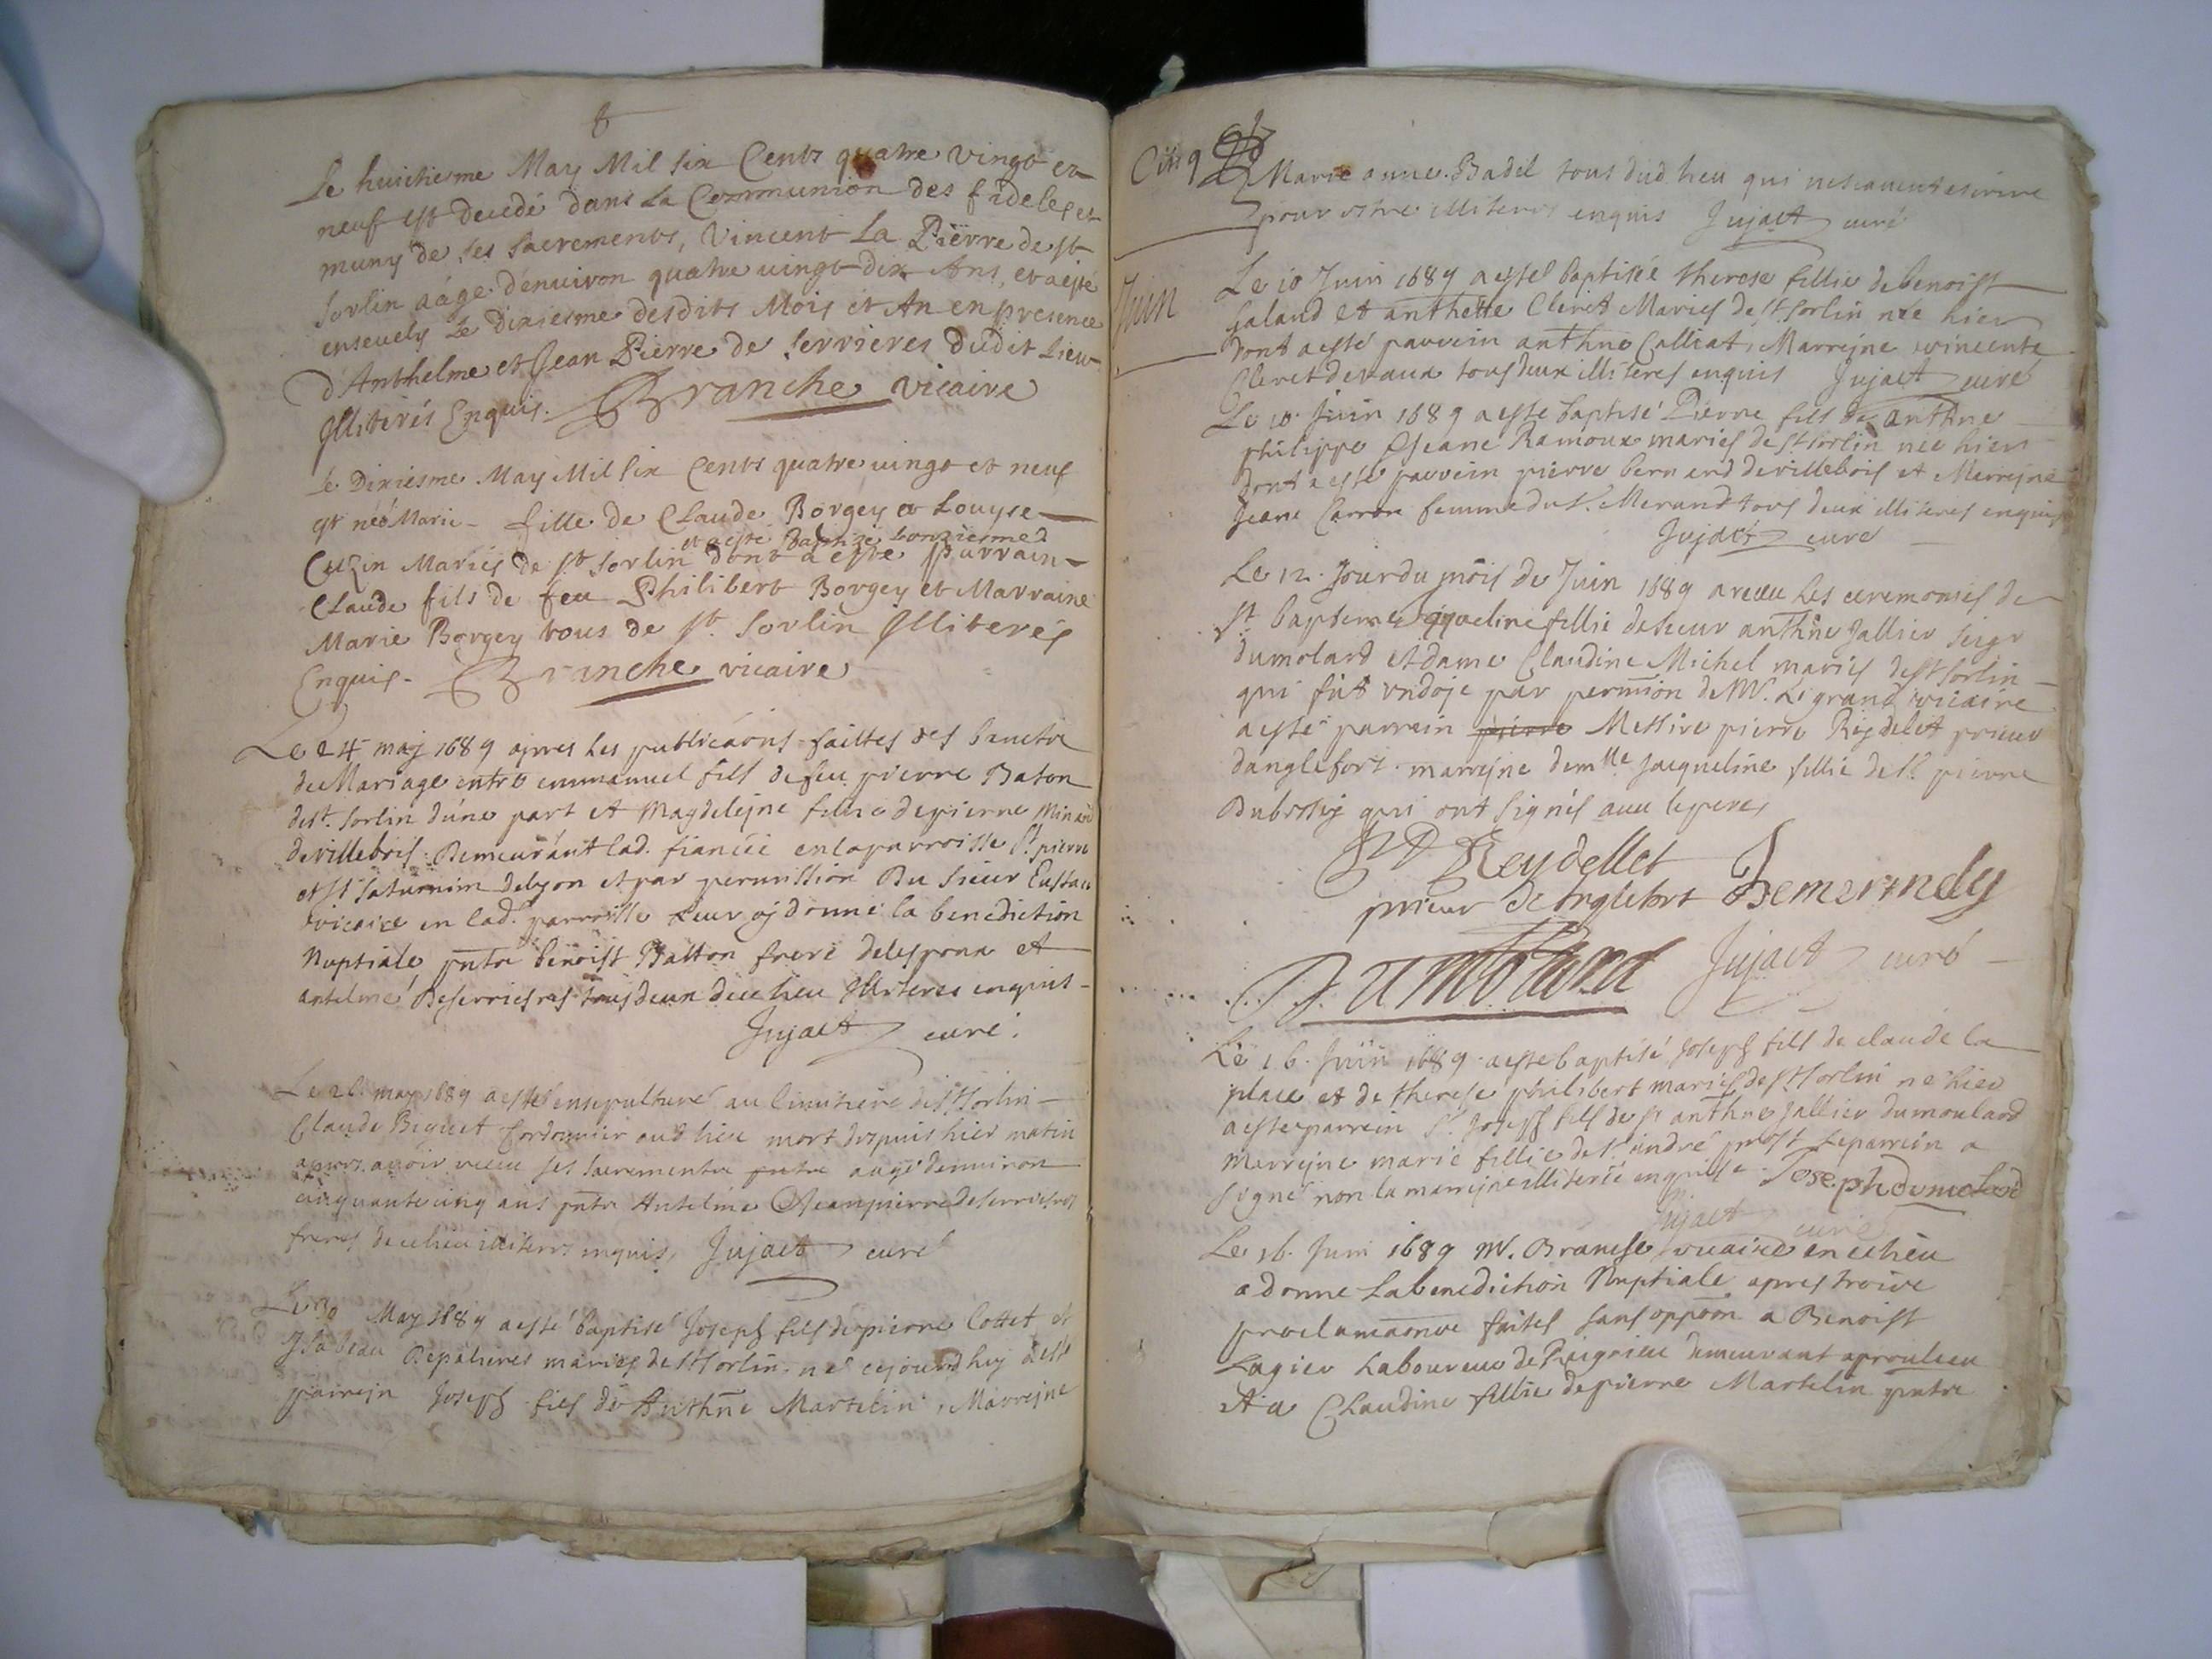 8
Le huictiesme May Mil six Cents quatre vingt et
neuf est decedé dans La Communion des fideles et
muny de ses sacrements, Vincent La Pierre de st
sorlin aâgé d'enuiron quatre uingt dix Ans, et a esté
enseuely Le dixiesme desdits Mois et An en presence
d'Anthelme et Jean Pierre de serrieres dudit Lieu
Jlliterés Enquis. Branche vicaire
Le Dixiesme May Mil six Cents quatre uingt et neuf
est néé Marie fille de Claude Borgey et Louyse
et a esté Baptizé
Cuzin Mariés de st sorlin dont a esté parrain
Claude fils de feu Philibert Borgey et Marraine
Marie Borgey tous de st sorlin Jlliterés
Enquis. Branche vicaire
Le 24 maj 1689 apres les publicaons faittes
du Mariage entre emmanuel fils de feu pierre Baton
de st. sorlin d'une part et Magdelejne fillie de pierre
de villebois Demeurant lad. fiancée en la parroisse st pierre
et st saturnin de lyon et par permission Du sieur
vicaire en lad. parroisse leur aj donné la benediction
Nuptiale pntz benoist Batton frere et
antelme Deserrieres tous deux de ce lieu Illiteres enquis
Jujact curé.
Le may 1689 a esté ensepulturé au cimitiere de st sorlin
Claude Cordonnier aud lieu mort depuis hier matin
apres avoir receu ses sacrements aagé denuiron
cinquante cinq ans pntz Antelme & Jean pierre Deserrieres
freres de ce lieu illiteres enquis, Jujact curé
Le 30 May 1689 a esté baptisé Joseph fils de pierre Cottet et
Jsabeau mariés de st sorlin né cejourdhuy a esté
parrejn Joseph fils de Anthne Martelin, Marrejne
Cinq
Marie anne Badel tous dud lieu qui ne scauent escrire
pour estre illiteres enquis Jujact curé
Juin
Le 10 Juin 1689 a esté baptisée therese fillie de benoist
Galand et anthette Cleret Mariés de st sorlin née hier
dont a esté parrein anthne Calliat, Marrejne vincente
Cleret tous deux illiteres enquis Jujact curé
Le 10 Juin 1689 a esté baptisé Pierre fils de anthne
philippe & Jeane Ramoux mariés de st sorlin né hier
dont a esté parrein pierre bernard de villebois et Marrejne
Jeane Carron femme du Sr. Merand tous deux illiteres enquis
Jujact curé
Le 12. Jour du mois de Juin 1689 a receu les ceremonies de
st baptesme jaqueline fillie de sieur anthne Jallier seigr
dumolard et dame Claudine Michel mariés de st sorlin
qui fut vndoje par permion de Mr. Le grand vicaire
a esté parrein pierre Messire pierre Rejdelet prieur
danglefort marrejne demlle Jacqueline fillie de sr. pierre
qui ont signés auec le pere
P Reydellet
prieur de Anglefort
Dumolard Jujact curé
Le 16. Juin 1689 a esté baptisé Joseph fils de claude la
place et de therese philibert mariés de st sorlin né hier
a esté parrein sr. Joseph fils de sr anthne Jallier dumoulard
marrejne marie fillie de sr. andré prost le parrein a
signé non la marrejne illiterée enquise Joseph dumolard
Jujact curé
Le 16. Juin 1689 Mr. Branche vicaire en ce lieu
a donné la benediction Nuptiale apres troise
proclamaons faites sans oppoon a Benoist
Lagier Laboureur de demeurant
et a Claudine fillie de pierre Martelin pntz